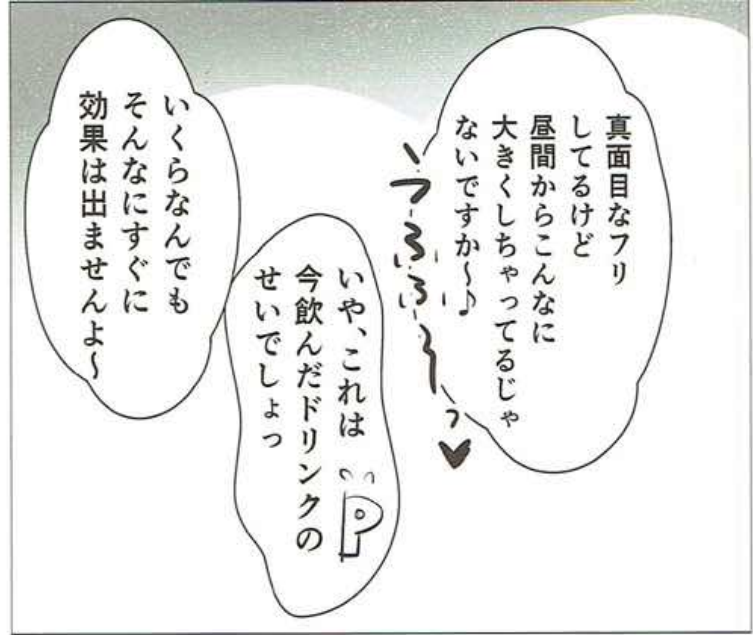 真面目なフリ
してるけど
昼間からこんなに
大きくしちゃってるじゃ
ないですか〜♪
うふふふ〜っ♥
いや、これは
今飲んだドリンクの
せいでしょっ
P
いくらなんでも
そんなにすぐに
効果は出ませんよ〜